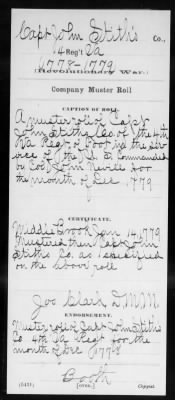 Capt John Stith's Co.,
4 Reg't Va
1778-1779
(Revolutionary War.)
Company Muster Roll
CAPTION OF ROLL.
A muster roll of Capt
John Stiths Co. of the 4th
Va Regt of Foot in the Ser
vice of the U. S. Commanded
by Col John Nevill for
the month of Dec 1779
CERTIFICATE.
Middle Brook Jan 14, 1779
Mustered then Capt John
Stiths Co. as specified
on the above roll
Jos Clark D M M
ENDORSEMENT.
Muster roll of Capt John Stiths
Co 4th Va Regt for the
month of Dec 1778
Booth
(545h) [OVER.] Copyist.